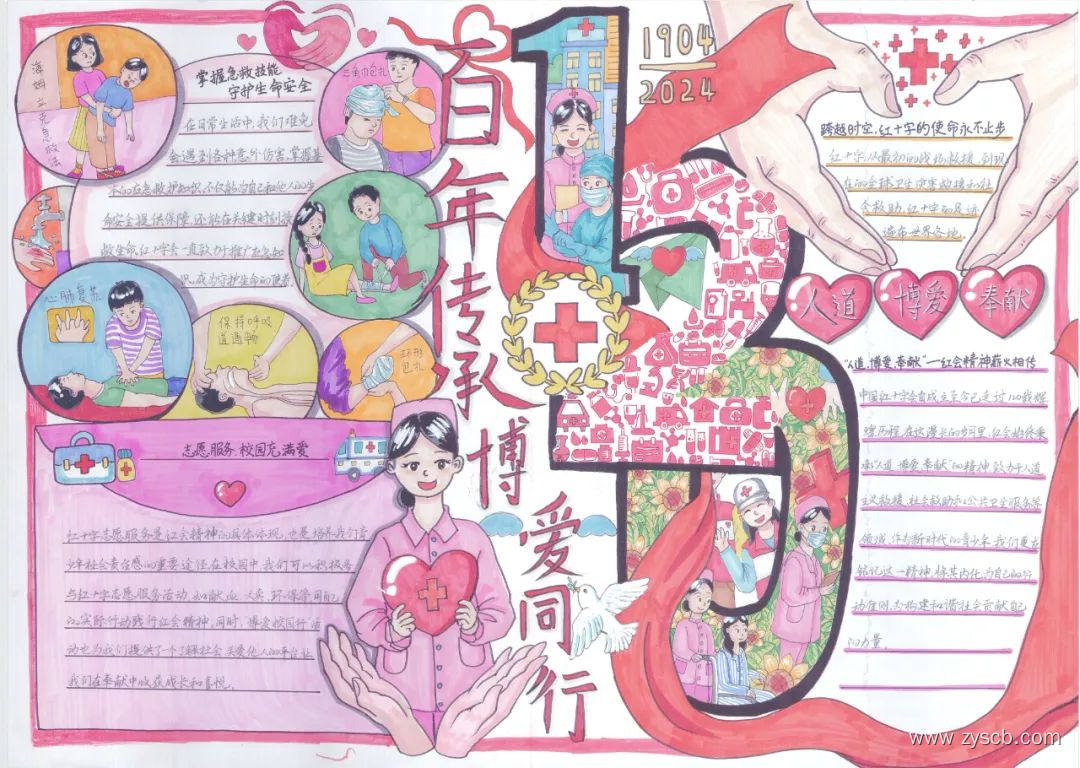 百年传承博爱同行
1904
2024
海姆立克急救法
掌握急救技能
守护生命安全
在日常生活中,我们难免
会遇到各种意外伤害,掌握基
本的应急救护知识,不仅能为自己和他人的生
命安全提供保障,还能在关键时刻拯
救生命,红十字会一直致力于推广急救知
识,成为守护生命的使者
三角巾包扎
心肺复苏
保持呼吸
道通畅
环形
包扎
志愿服务,校园充满爱
红十字志愿服务是红会精神的具体体现,也是培养我们青
少年社会责任感的重要途径,在校园中,我们可以积极参
与红十字志愿服务活动,如献血、火炎、环保等用自己
的实际行动践行红会精神,同时,博爱校园行活
动也为我们提供了一个了解社会、关爱他人的平台,让
我们在奉献中收获成长和喜悦。
跨越时空,红十字的使命永不止步
红十字,从最初的战场救援,到现
在的全球卫生灾害救援和社
会救助,红十字的足迹
遍布世界各地.
人道 博爱 奉献
"人道、博爱、奉献"—红会精神薪火相传
中国红十字会自成立至今已走过120载辉
煌历程,在这漫长的岁月里,红会始终秉
承"人道、博爱、奉献"的精神,致力于人道
主义救援、社会救助和公共卫生服务等
领域,作为新时代的青少年,我们更应
铭记这一精神,将其内化为自己的行
动准则,为构建和谐社会贡献自己
的力量。
www.zyscb.com